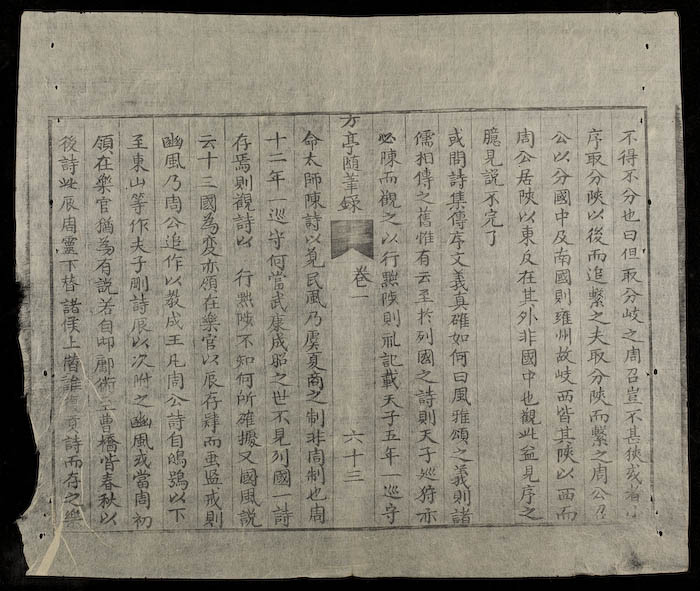 不得不分也曰但取分岐之周召豈不甚狹或者小
序取分陝以後而追繫之夫取分陝而繫之周公召
公以分國中及南國則雍州故岐西皆其陝以西而
周公居陝以東反在其外非國中也觀此益見序之
臆見説不完了
或問詩集傳序文義真確如何曰風雅頌之義則諸
儒相傳之舊惟有云至於列國之詩則天子巡狩亦
必陳而觀之以行黜陟則礼記載天子五年一巡守
方亭随筆録 卷一 六十三
命太師陳詩以覓民風乃虞夏商之制非周制也周
十二年一巡守何當武康成昭之世不見列國一詩
存焉則觀詩以 行黜陟不知何所確據又國風説
云十三國為変亦領在樂官以辰存肄而垂監戒則
豳風乃周公追作以教成王凡周公詩自鴟鴞以下
至東山等作夫子刪詩辰以次附之豳風或當周初
領在樂官猶為有説若自邶鄘衛至曹檜皆春秋以
後詩此辰周靈下替諸侯上僭誰詩而存之樂